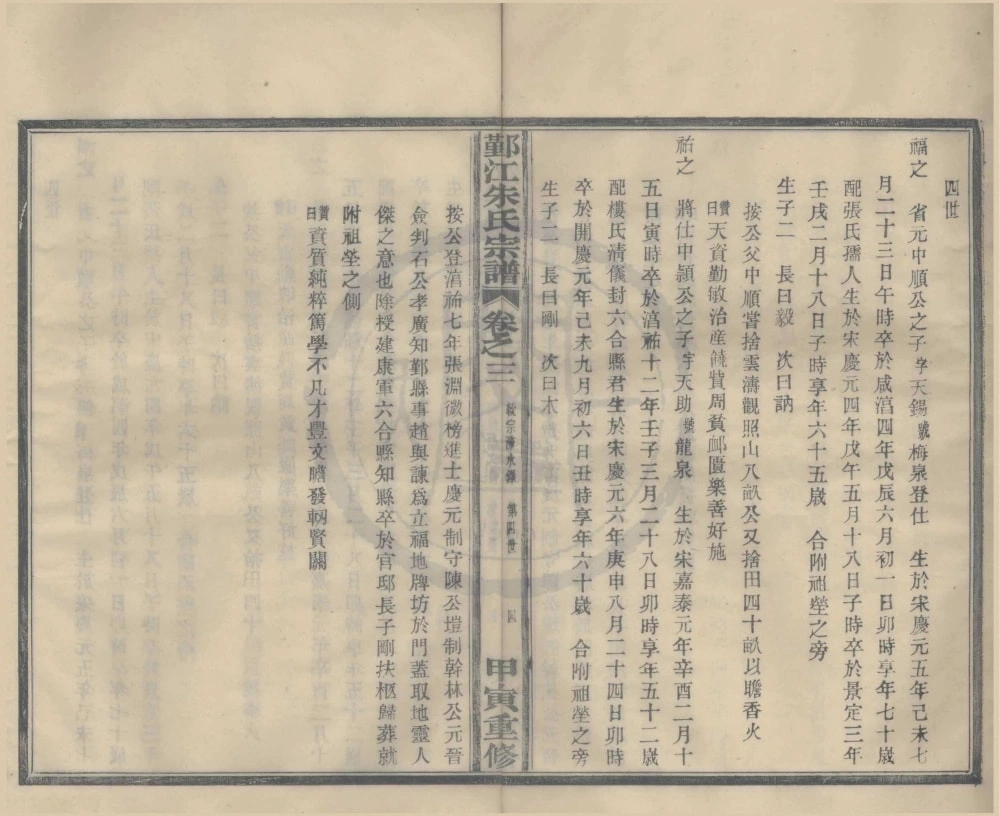 四世
福之 省元中順公之子字天錫號梅泉登仕 生於宋慶元五年己未七
月二十三日午時卒於咸湻四年戊辰六月初一日卯時享年七十歲
配張氏孺人生於宋慶元四年戊午五月十八日子時卒於景定三年
壬戌二月十八日子時享年六十五歲 合附祖塋之旁
生子二 長曰毅 次曰訥
按公父中順嘗捨雲濤觀照山八畝公又捨田四十畝以贍香火
贊曰天資勤敏治產饒貲周貧卹匱樂善好施
祐之 將仕中頴公之子字天助號龍泉 生於宋嘉泰元年辛酉二月十
五日寅時卒於湻祐十二年壬子三月二十八日卯時享年五十二歲
配樓氏淸儀封六合縣君生於宋慶元六年庚申八月二十四日卯時
卒於開慶元年己未九月初六日丑時享年六十歲 合附祖塋之旁
生子二 長曰剛 次曰木
鄞江朱氏宗譜 卷之三 第四世 四 甲寅重修
按公登湻祐七年張淵微榜進士慶元制守陳公塏制幹林公元晉
僉判石公孝廣知鄞縣事趙與諫爲立福地牌坊於門蓋取地靈人
傑之意也除授建康軍六合縣知縣卒於官邸長子剛扶柩歸葬就
附祖塋之側
贊曰資質純粹篤學不凡才豐文贍發軔賢關